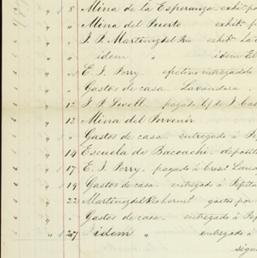 " " 8 Mina de la Esperanza exhib. p
" " " Mina del Puerto exhib. f
" " " F. P. Martinez del Rio exhib. la
" " " idem " idem El
" " " E. J. Perry efectivo entregado
" " " Gastos de casa. Lavandera
" " 12 F. P. Jewell. pagado
" " 12 Mina del Porvenir
" " " Gastos de casa entregado á P
" " 14 Escuela de Bacoachi deposit
" " 17 E. J. Perry. pagado á
" " 19 Gastos de casa. entregado á Pepita
" " 22 Martinez del Rio gastos por
" " " Gastos de casa. entregado á Pep
" " 27 idem " entregado á
sigue